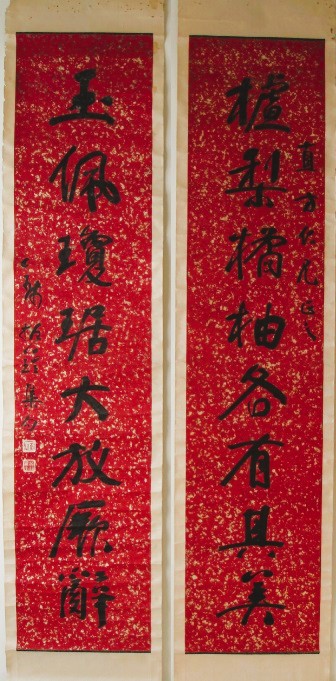 樝梨橘柚各有其美
直方仁兄正之
玉佩瓊琚大放厥辭
集句